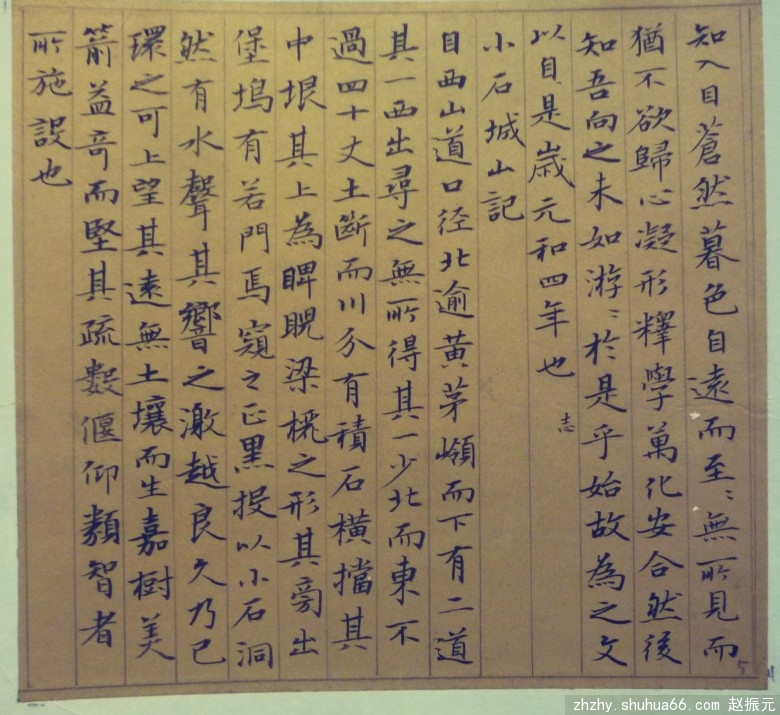 知入日蒼然暮色自遠而至〻無所見而
猶不欲歸心凝形釋學萬化安合然後
知吾向之未如游〻於是乎始故為之文
以自是歲元和四年也
志
小石城山記
自西山道口径北逾黃茅嶺而下有二道
其一西出尋之無所得其一少北而東不
過四十丈土斷而川分有積石橫擋其
中垠其上為睥睨梁欐之形其旁出
堡塢有若門焉窺之正黑投以小石洞
然有水聲其響之激越良久乃已
環之可上望其遠無土壤而生嘉樹美
箭益奇而堅其疏數偃仰類智者
所施設也
5
zhzhy.shuhua66.com 赵振元